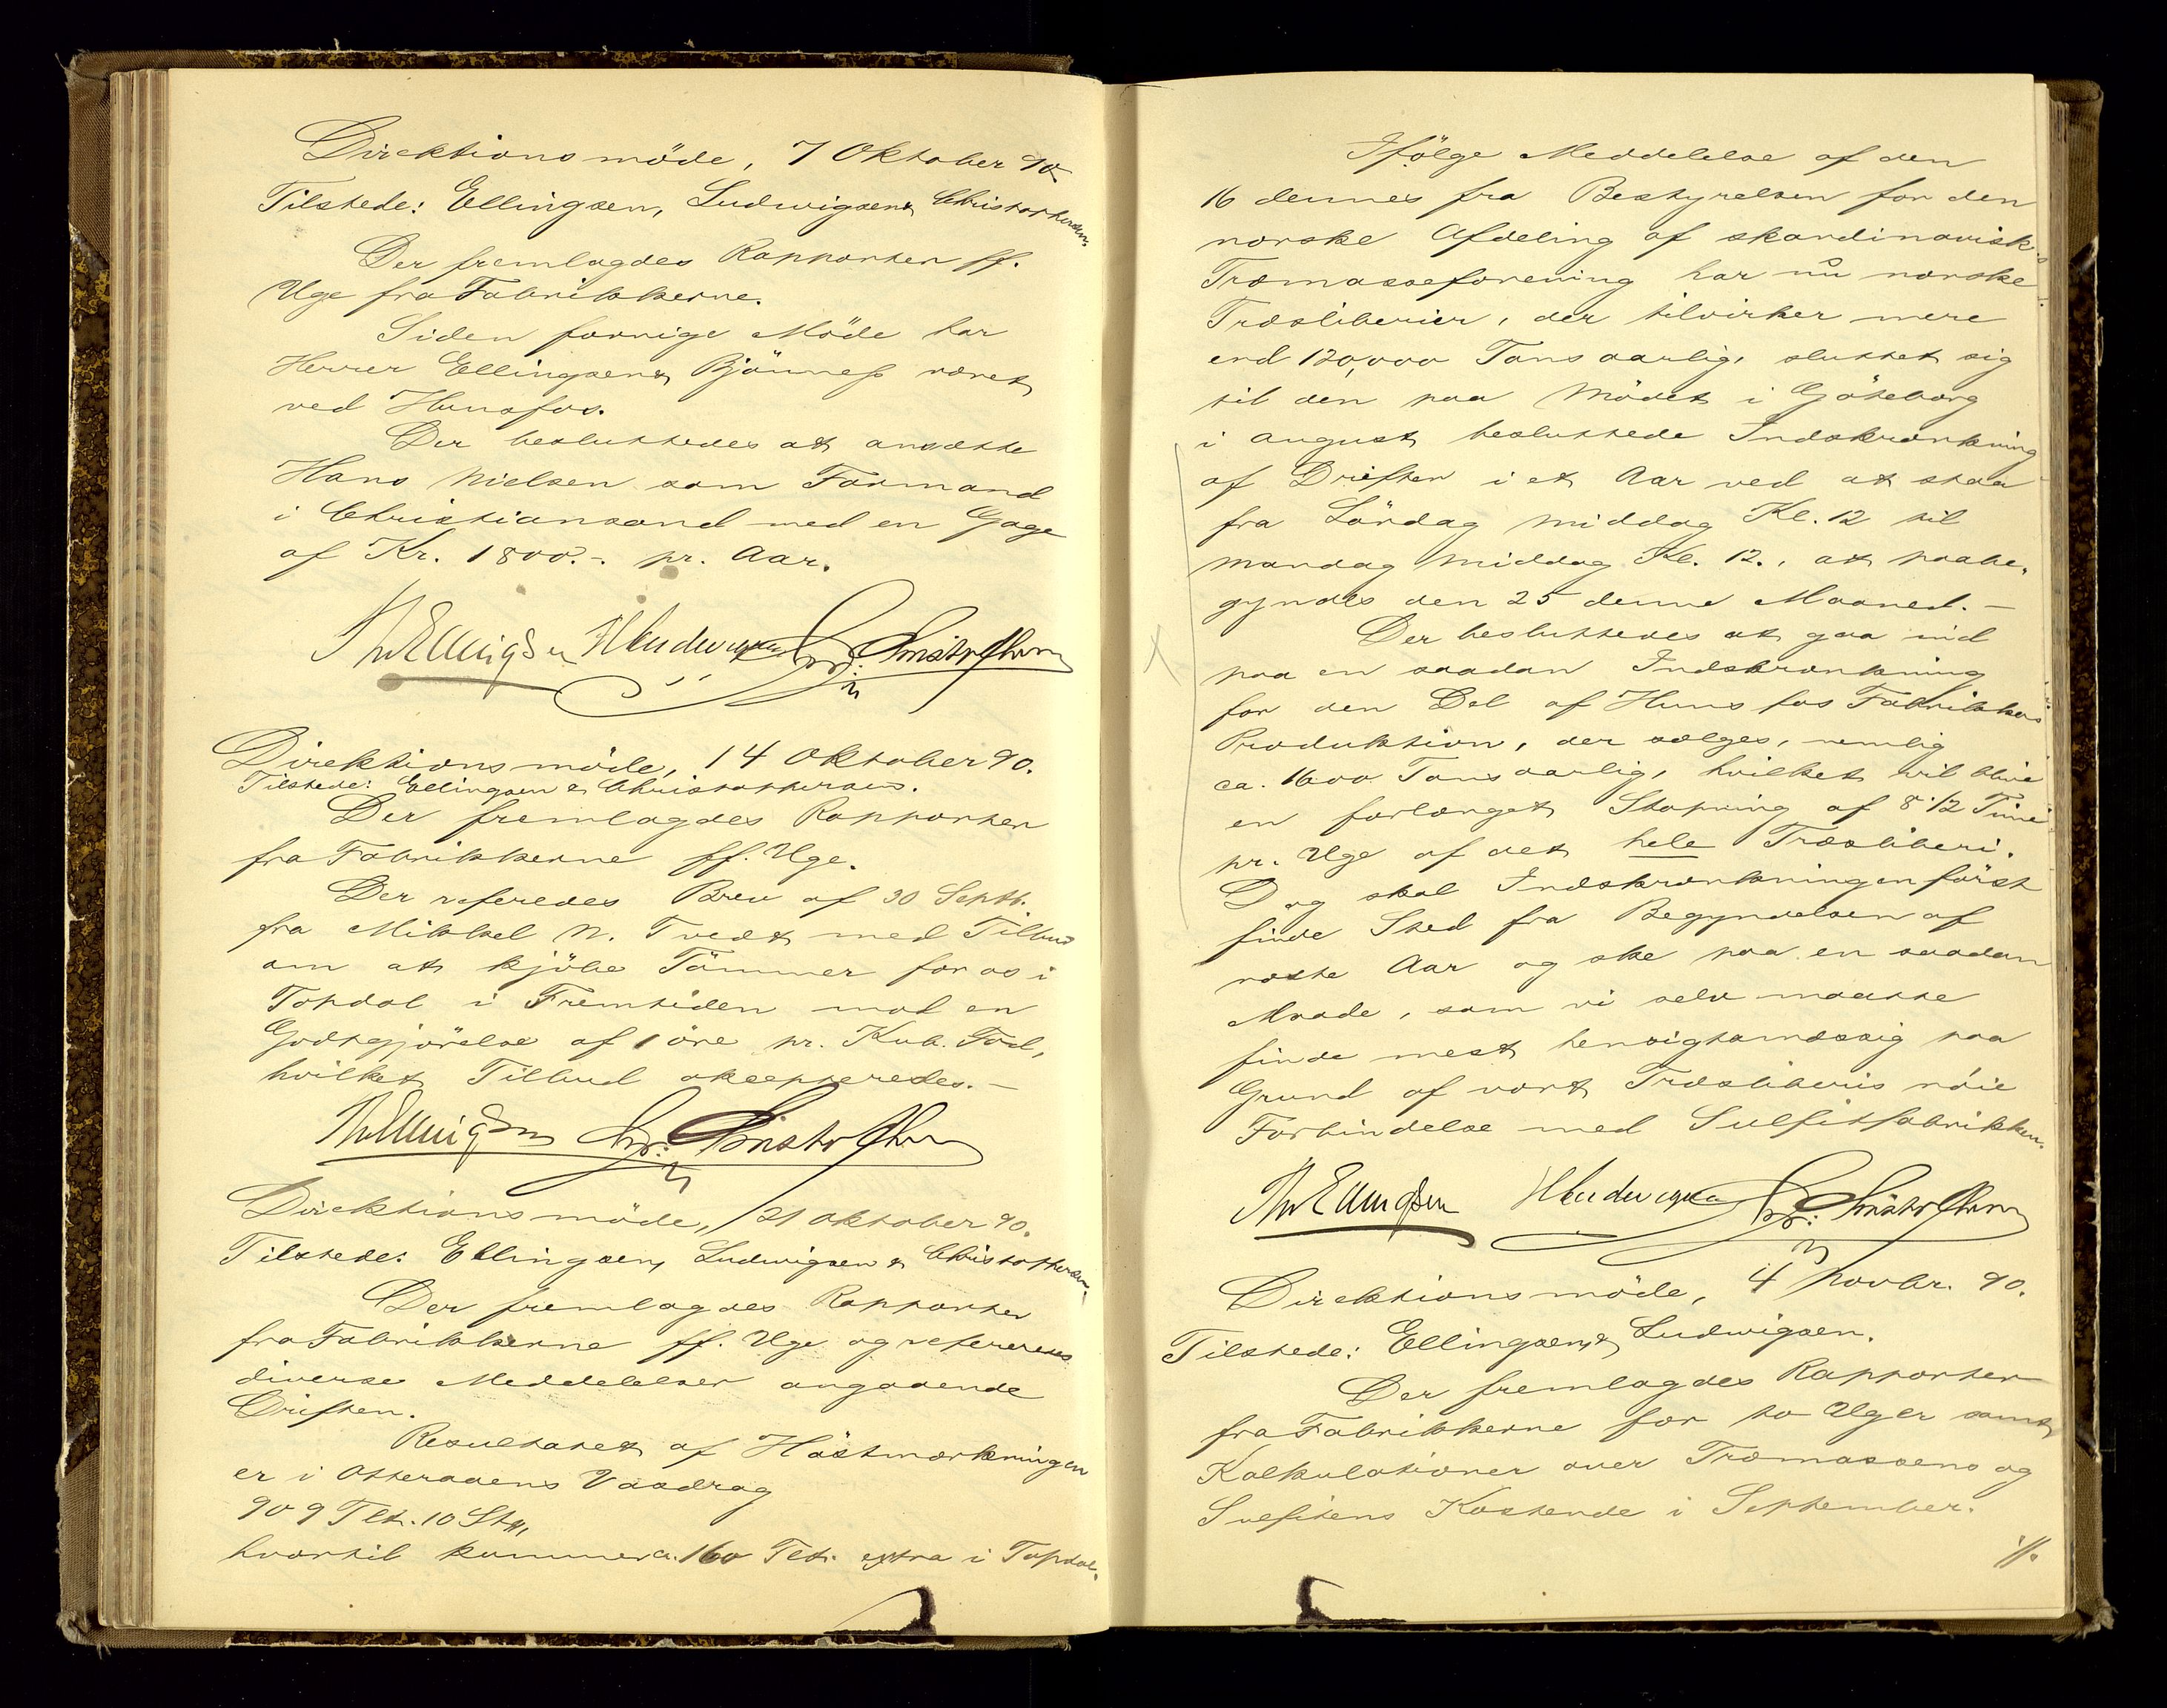 Direktionsmöde, 7 Oktober 90.
Tilstede: Ellingsen, Ludwigsen & Christophersen.
Der fremlagdes Rapporter ff.
Uge fra Fabrikkerne.
Siden forrige Möde har
Herrer Ellingsen & Bjönness været
ved Hunsfos.
Der besluttedes at ansætte
Hans Nielsen som Formand
i Christiansand med en Gage
af Kr. 1800.- pr. Aar.
Th Ellingsen HLudwigsen Chr. Christophersen
Direktionsmöde, 14 Oktober 90.
Tilstede: Ellingsen & Christophersen.
Der fremlagdes Rapporter
fra Fabrikkerne ff. Uge.
Der referedes Brev af 30 Septb.
fra Mikkel N. Tvedt med Tilbud
om at kjöbe Tömmer for os i
Topdal i Fremtiden mod en
Godtgjörelse af 1 öre pr. Kub. Fod,
hvilket Tilbud akcepteredes.-
Th Ellingsen Chr. Christophersen
Direktionsmöde, 21 Oktober 90.
Tilstede: Ellingsen, Ludwigsen & Christophersen.
Der fremlagdes Rapporter
fra Fabrikkerne ff. Uge og refereredes
diverse Meddelelser angaaende
Driften.
Resultatet af Höstmærkningen
er i Otteraaens Vasdrag
909 Tlt. 10 Stk,
hvortil kommer ca. 160 Tlt. extra i Topdal.
Ifölge Meddelelse af den
16 dennes fra Bestyrelsen for den
norske Afdeling af skandinavisk
Træmasseforening har nu norske
Træsliberier, der tilvirker mere
end 120,000 Tons aarlig, sluttet sig
til den paa Mödet i Göteborg
i August besluttede Indskrænkning
af Driften i et Aar ved at staa
fra Lördag Middag Kl. 12 til
Mandag Middag Kl. 12., at paabe-
gyndes den 25 denne Maaned.-
Der besluttedes at gaa ind
paa en saadan Indskrænkning
for den Del af Hunsfos Fabrikkers
Produktion, der sælges, nemlig
ca. 1600 Tons aarlig, hvilket vil blive
en forlænget Stopning af 8 1/2 Time
pr. Uge af det hele Træsliberi.
Dog skal Indskrænkningen först
finde Sted fra Begyndelsen af
næste Aar og ske paa en saadan
Maade, som vi selv maatte
finde mest hensigtsmæssig paa
Grund af vort Træsliberis nöie
Forbindelse med Sulfitfabrikken.
Th Ellingsen HLudwigsen Chr. Christophersen
Direktionsmöde, 4 Novbr. 90.
Tilstede: Ellingsen & Ludwigsen.
Der fremlagdes Rapporter
fra Fabrikkerne for to Uger samt
Kalkulationer over Træmassens og
Sulfitens Kostende i September.
·/.